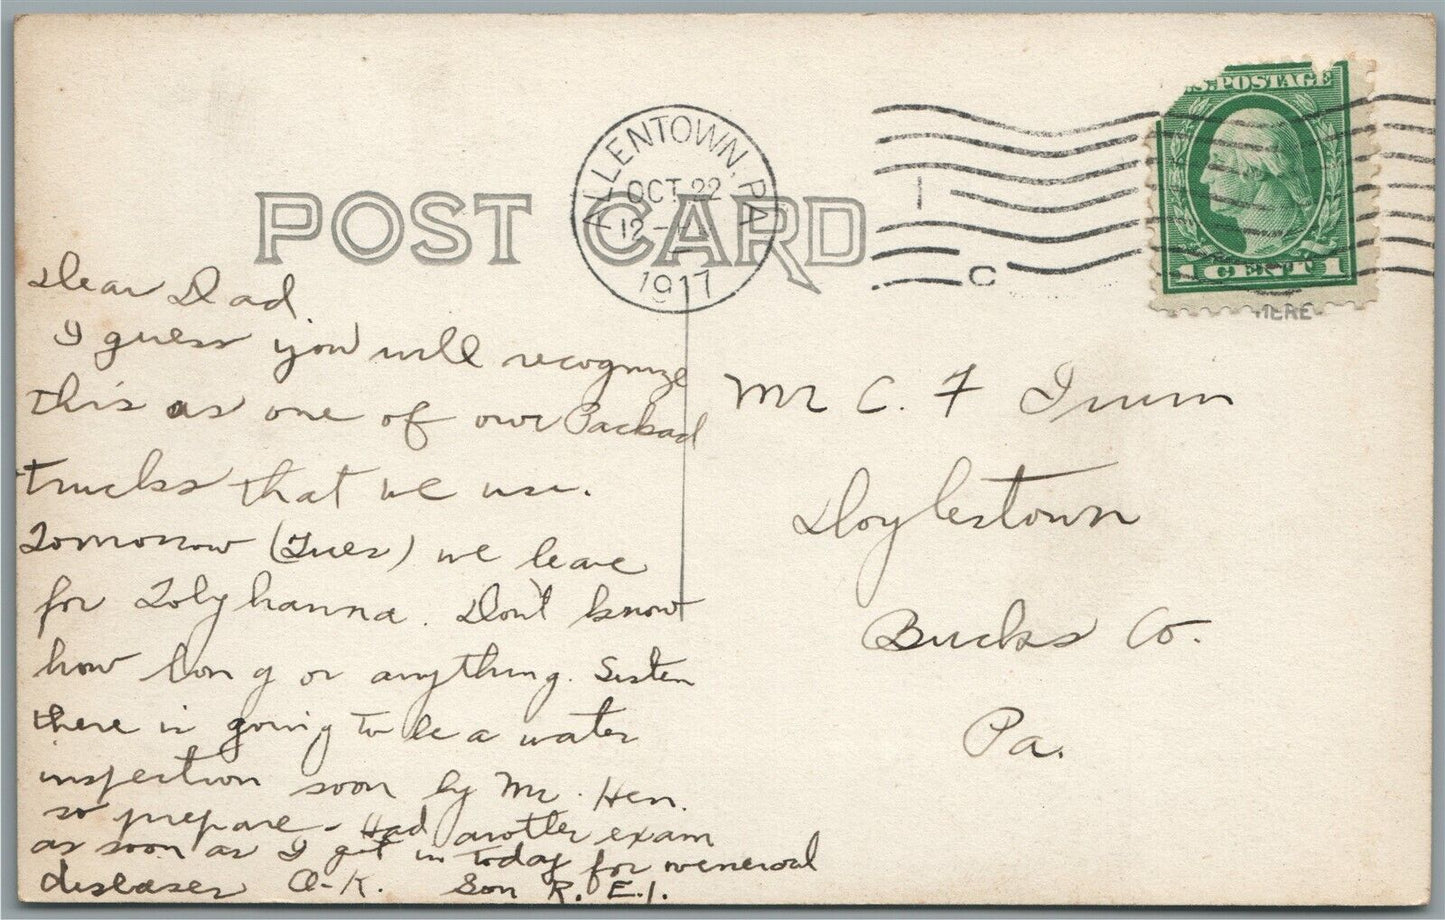 POST CARD
ALLENTOWN, PA
OCT 22
12-
1917
C
U.S. POSTAGE
1 CENT 1
HERE
Dear Dad.
I guess you will recognize
this as one of our Packad
trucks that we use.
Tomorrow (Tues) we leave
for Tobyhanna. Don't know
how long or anything. Listen
there is going to be a water
inspection soon by Mr. Hen.
so prepare - Had another exam
as soon as I get in today for veneroal
diseases O-K. Son R. E. I.
Mr C. F Irwin
Doylestown
Bucks Co.
Pa.